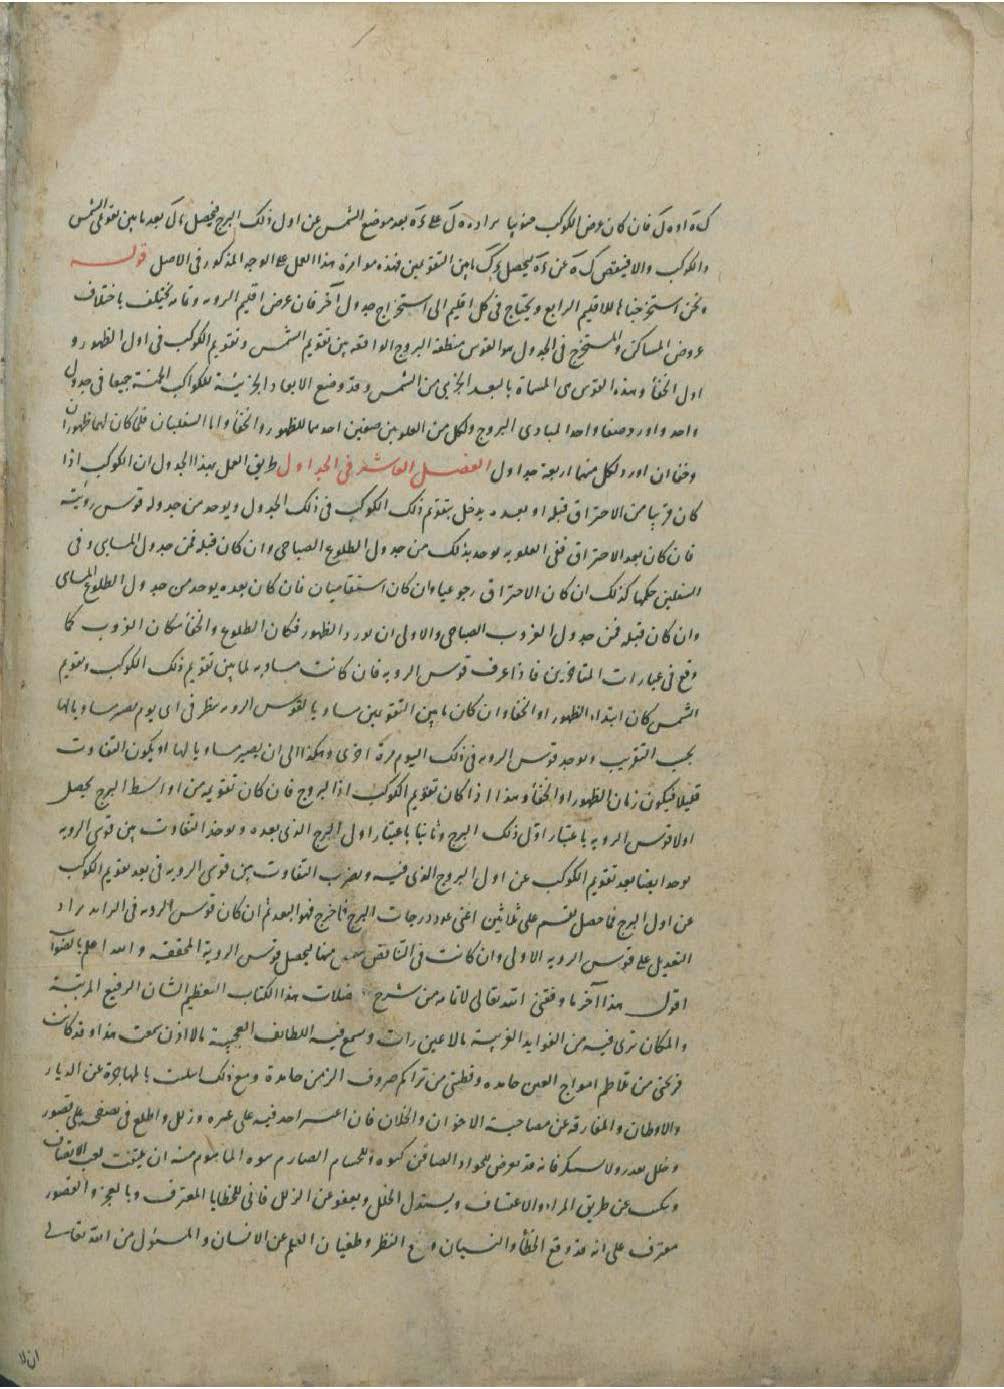 فان كان عرض الكوكب جنوبيا بعد موضع الشمس عن اول ذلك البرج فيحصل بعد ما بين تقويمى الشمس
والكوكب والا فينقص من ليحصل ما بين التقويمين فهذه مؤامرة هذا العمل على الوجه المذكور فى الاصل قوله
ونحن استخرجناها للاقليم الرابع ويحتاج فى كل اقليم الى استخراج جدول آخر فان عرض اقليم الرويه يختلف باختلاف
عروض المساكن والمستخرج فى الجدول هو القوس من منطقة البروج الواقعة بين تقويم الشمس وتقويم الكوكب فى اول الظهور و
اول الخفأ وهذه القوس هى المسماة بالبعد الجزئى من الشمس وقد وضع الابعاد الجزئية للكواكب الخمسة جميعا فى جدول
واحد واورد صفا واحدا لمبادى البروج ولكل من العلويين صفين احدهما للظهور والخفأ واما السفليان فلما كان لهما ظهوران
وخفاان اورد لكل منهما اربعة جداول الفصل العاشر فى الجداول طريق العمل بهذا الجدول ان الكوكب اذا
كان قريبا من الاحتراق قبله او بعده يدخل بتقويم ذلك الكوكب فى ذلك الجدول ويوخد من جدوله قوس رؤيته
فان كان بعد الاحتراق ففى العلويه يوخد بذلك من جدول الطلوع الصباحى وان كان قبله فمن جدول المسايى وفى
السفليين حكمها كذلك ان كان الاحتراق رجوعيا وان كان استقاميا فان كان بعده يوخد من جدول الطلوع المساى
وان كان قبله فمن جدول الغروب الصباحى والاولى ان يورد الظهور مكان الطلوع والخفأ مكان الغروب كما
وقع فى عبارات المتاخرين فاذا عرف قوس الرويه فان كانت مساويه لما بين تقويم ذلك الكوكب وتقويم
الشمس كان ابتداء الظهور او الخفاء وان كان ما بين التقويمين مساويا لقوس الرويه ينظر فى اى يوم يصير مساويا لها
بحسب التقريب ويوجد قوس الرويه فى ذلك اليوم مرة اخرى وهكذا الى ان يصير مساويا لها او يكون التفاوت
قليلا فيكون زمان الظهور او الخفأ وهذا اذا كان تقويم الكوكب البروج فان كان تقويمه من اواسط البرج يحصل
اولا قوس الرويه باعتبار اول ذلك البرج وثانيا باعتبار اول البرج الذى بعده ويوخذ التفاوت بين قوسى الرويه
يوخد ايضا بعد تقويم الكوكب عن اول البروج الذى فيه ويضرب التفاوت بين قوسى الرويه فى بعد تقويم الكوكب
عن اول البرج فما حصل يقسم على ثلاثين اعنى عدد درجات البرج فما خرج فهو البعد ثم ان كان قوس الرويه فى الزايد يزاد
التعديل على قوس الرويه الاولى وان كانت فى التناقص ينقص منها ليحصل قوس الروية المحققه والله اعلم بالصواب
اقول هذا آخر ما وفقنى الله تعالى لاتمامه من شرح معضلات هذا الكتاب العظيم الشان الرفيع المرتبة
والمكان ترى فيه من الفوايد الغريبة ما لا عين رات وتسمع فيه اللطايف العجيبة ما لا اذن سمعت هذا وقد كانت
قريحتى من تلاطم امواج الغموم خامده وفطنتى من تراكم صروف الزمن جامدة ومع ذلك ابتليت بالمهاجرة عن الديار
والاوطان والمفارقة عن مصاحبة الاخوان والخلان فان اعثر احد فيه على عثره وزلل واطلع فى تصفحه على قصور
وخلل فليعذر ولا يستنكر فانه قد يعرض للجواد الصافن كبوه وللحسام الصارم نبوه المامول منه ان
عن طريق المراء والاعتساف ويستدل الخلل ويعفو عن الزلل فانى للخطايا المعترف وبالعجز والقصور
معترف على انه قد وقع الخطأ والنسيان النظر وطغيان القلم عن الانسان والمسئول من الله تعالى
ان لا